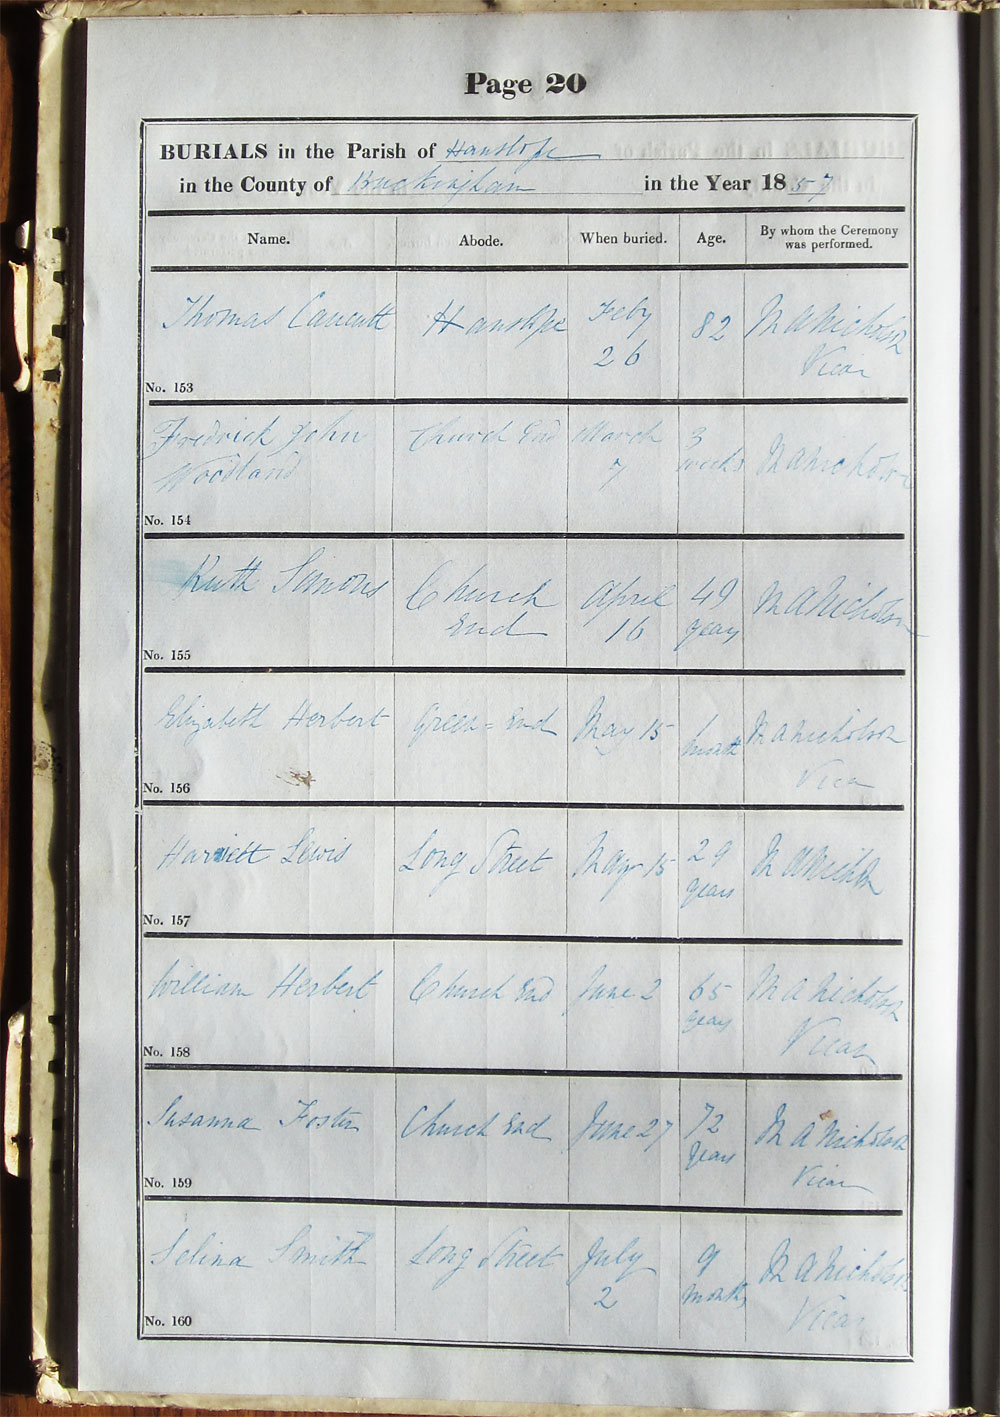 Page 20
BURIALS in the Parish of Hanslope
in the County of Buckingham in the Year 1857
Name. Abode. When buried. Age. By whom the Ceremony
was performed.
Thomas Hanslope Feby 82 M A Nicholson
26 Vicar
No. 153
Fredrick John Church End March 3 M A Nicholson
Woodland 7 weeks
No. 154
Ruth Simons Church April 49 M A Nicholson
End 16 years
No. 155
Elizabeth Herbert Green = End May 15 1 M A Nicholson
month Vicar
No. 156
Harriett Lewis Long Street May 15 29 M A Nicholson
years
No. 157
William Herbert Church End June 2 65 M A Nicholson
years Vicar
No. 158
Susanna Foster Church End June 27 72 M A Nicholson
years Vicar
No. 159
Selina Smith Long Street July 9 M A Nicholson
2 months Vicar
No. 160